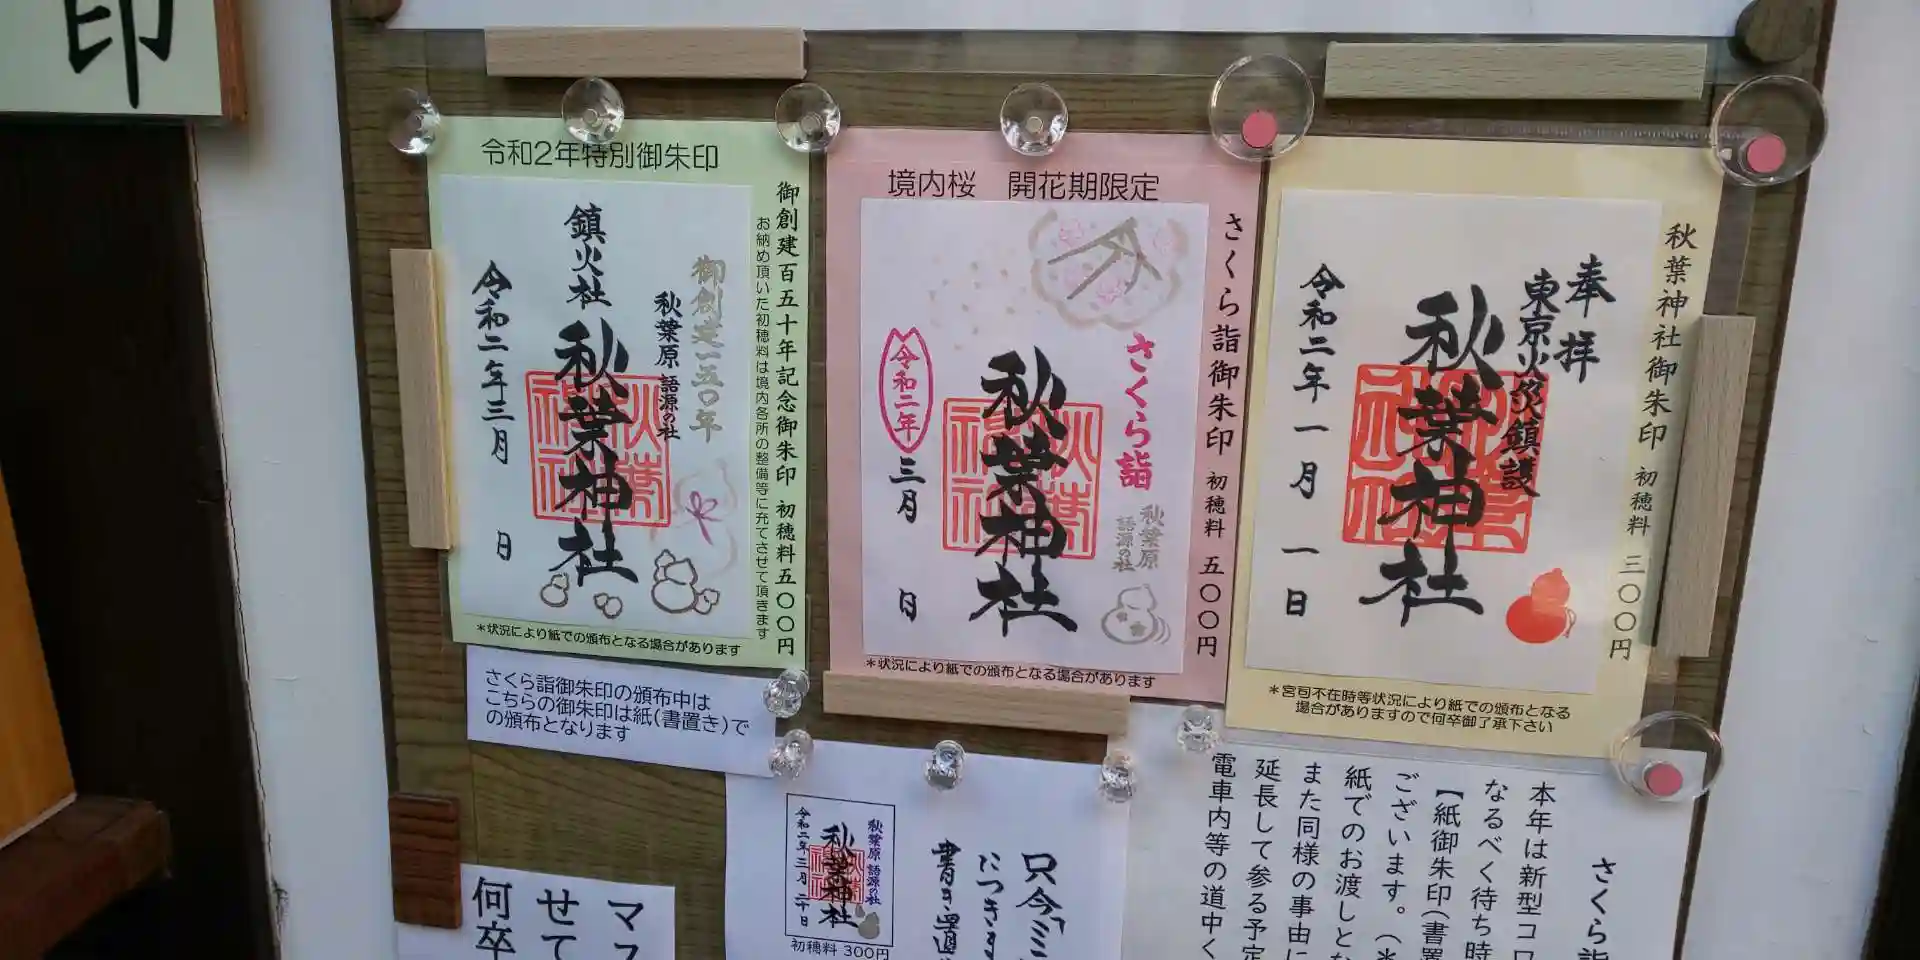 印
令和2年特別御朱印
御創建百五十年記念御朱印 初穂料五〇〇円
お納め頂いた初穂料は境内各所の整備等に充てさせて頂きます
御創建一五〇年
秋葉原 語源の社
鎮火社
秋葉神社
令和二年三月 日
*状況により紙での頒布となる場合があります
さくら詣御朱印の頒布中は
こちらの御朱印は紙(書置き)で
の頒布となります
境内桜 開花期限定
さくら詣御朱印 初穂料 五〇〇円
さくら詣
秋葉原
語源の社
秋葉神社
令和二年
三月 日
*状況により紙での頒布となる場合があります
秋葉神社御朱印 初穂料 三〇〇円
奉拝
東京火災鎮護
秋葉神社
令和二年一月一日
*宮司不在時等状況により紙での頒布となる
場合がありますので何卒御了承下さい
さくら詣
本年は新型コロ
なるべく待ち時
【紙御朱印(書置
ございます。(*
紙でのお渡しとな
また同様の事由に
延長して参る予定
電車内等の道中く
只今
につきます
書き置
秋葉原 語源の社
秋葉神社
令和二年三月二十日
初穂料 300円
マス
せて
何卒